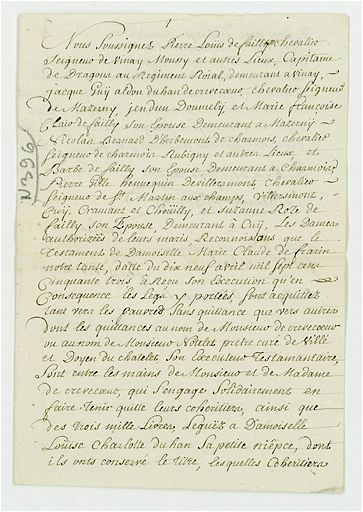 Nous Soussignez Pierre Loüis de failly chevalier
Seigneur de Vinay Moussy et autres Lieux, Capitaine
de Dragons au Regiment Roïal, demeurant a Vinay,
jacque Guÿ aldon duhan de crevecoeur chevalier seigneur
de Mazerny, jendun et Marie francoise
Claire de failly son Epouse Demeurant a Mazerny
Nicolas Bernard D'herbemont de charmois, chevalier
seigneur de charmois Nubigny et autres Lieux, et
Barbe de failly son Epouse Demeurant a Charmois,
Pierre Gille hennequin de Villermont Chevalier
Seigneur de St Martin aux champs, Villermont,
Cuÿ, Cramant et Choüilly, et suzanne Roze de
failly son Epouse, Demeurant à Cuÿ, Les Dames
authorizées de leurs maris, Reconnoissons que le
Testament de Damoiselle Marie Claude de
notre tante, datté du dix neuf avril mil sept cens
Cinquante trois, à Reçu son Execution qu'en
Consequence les Legs y portées, sont acquittez
tant vers les pauvres sans quittance que vers autres
dont les quittances au nom de Monsieur de crevecoeur
ou au nom de Monsieur Nolelet pretre curé de Ville
et Doyen du chatelet son Executeur Testamentaire,
sont entre les mains de Monsieur et de Madame
de crevecoeur, qui s'engage Solidairement en
faire Tenir quitte leurs coheritiers, ainsi que
des trois mille Livres, Leguéz a Damoiselle
Louise Charlotte duhan sa petite niépce, dont
ils onts conservé le titre, lesquelles Coheritiers
N 396